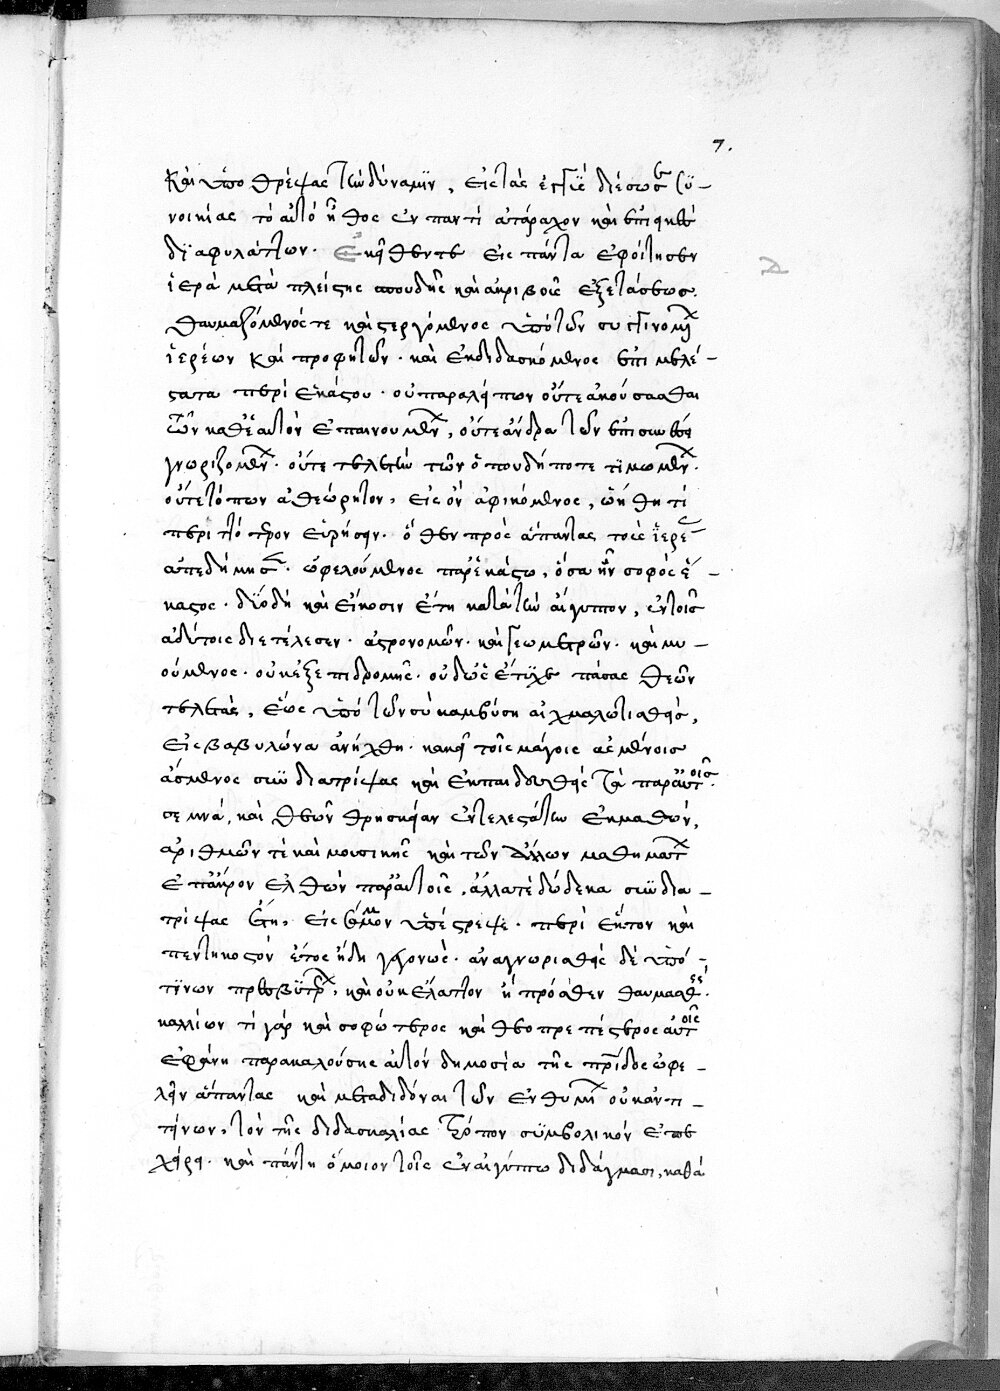 7.
καὶ ὑποθρέψας τὴν δύναμιν, εἰς τὰς ἑστίας διέσωσε συ-
νοικίας τὸ αὐτὸ ἦθος ἐν παντὶ ἀτάραχον καὶ ἐπιεικὲς
διαφυλάττων. ἐκεῖθεν τε εἰς πάντα ἐφοίτησεν
ἱερὰ μετὰ πλείστης σπουδῆς καὶ ἀκριβοῦς ἐξετάσεως.
θαυμαζόμενός τε καὶ στεργόμενος ὑπὸ τῶν συγγινομένων
ἱερέων καὶ προφητῶν. καὶ ἐκδιδασκόμενος ἐπιμελέ-
στατα περὶ ἑκάστου. οὐ παραλείπων οὔτε ἀκούσασθαι
τῶν καθ' ἑαυτὸν ἐπαινουμένων, οὔτε ἄνδρα τῶν ἐπὶ συνέσει
γνωριζομένων. οὔτε τελετὴν τῶν ὁπουδήποτε τιμωμένων.
οὔτε τόπων ἀθεώρητον, εἰς ὃν ἀφικόμενος, ὠήθη τι
περιττότερον εὑρήσειν. ὅθεν πρὸς ἅπαντας τοὺς ἱερεῖς
ἀπεδήμησεν. ὠφελούμενος παρ' ἑκάστῳ, ὅσα ἦν σοφὸς ἕ-
καστος. δύο δὴ καὶ εἴκοσιν ἔτη κατὰ τὴν αἴγυπτον, ἐν τοῖς
ἀδύτοις διετέλεσεν. ἀστρονομῶν. καὶ γεωμετρῶν. καὶ μυ-
ούμενος. οὐκ ἐξ ἐπιδρομῆς. οὐδ' ὡς ἔτυχε πάσας θεῶν
τελετάς, ἕως ὑπὸ τῶν σὺν καμβύσῃ αἰχμαλωτισθείς,
εἰς βαβυλῶνα ἀνήχθη. κἀκεῖ τοῖς μάγοις ἀσμένοις
ἄσμενος συνδιατρίψας καὶ ἐκπαιδευθεὶς τὰ παρ' αὐτοῖς.
σεμνά, καὶ θεῶν θρησκείαν ἐντελεστάτην ἐκμαθών,
ἀριθμῶν τὲ καὶ μουσικῆς καὶ τῶν ἄλλων μαθημάτων
ἐπ' ἄκρον ἐλθὼν παρ' αὐτοῖς, ἄλλα τὲ δώδεκα συνδια-
τρίψας ἔτη, εἰς σάμον ὑπέστρεψε. περὶ ἕκτον καὶ
πεντηκοστὸν ἔτος ἤδη γεγονώς. ἀναγνωρισθεὶς δὲ ὑπό
τινων πρεσβυτέρων, καὶ οὐκ ἔλαττον ἢ πρόσθεν θαυμασθείς.
καλλίων τὲ γὰρ καὶ σοφώτερος καὶ θεοπρεπέστερος αὐτοῖς
ἐφάνη παρακαλούσης αὐτὸν δημοσίᾳ τῆς πατρίδος ὠφε-
λεῖν ἅπαντας καὶ μεταδιδόναι τῶν ἐνθυμημάτων οὐκ ἀντι-
τείνων, τὸν τῆς διδασκαλίας τρόπον συμβολικὸν ἐπε-
χείρει. καὶ πάντη ὅμοιον τοῖς ἐν αἰγύπτῳ διδάγμασι, καθὰ